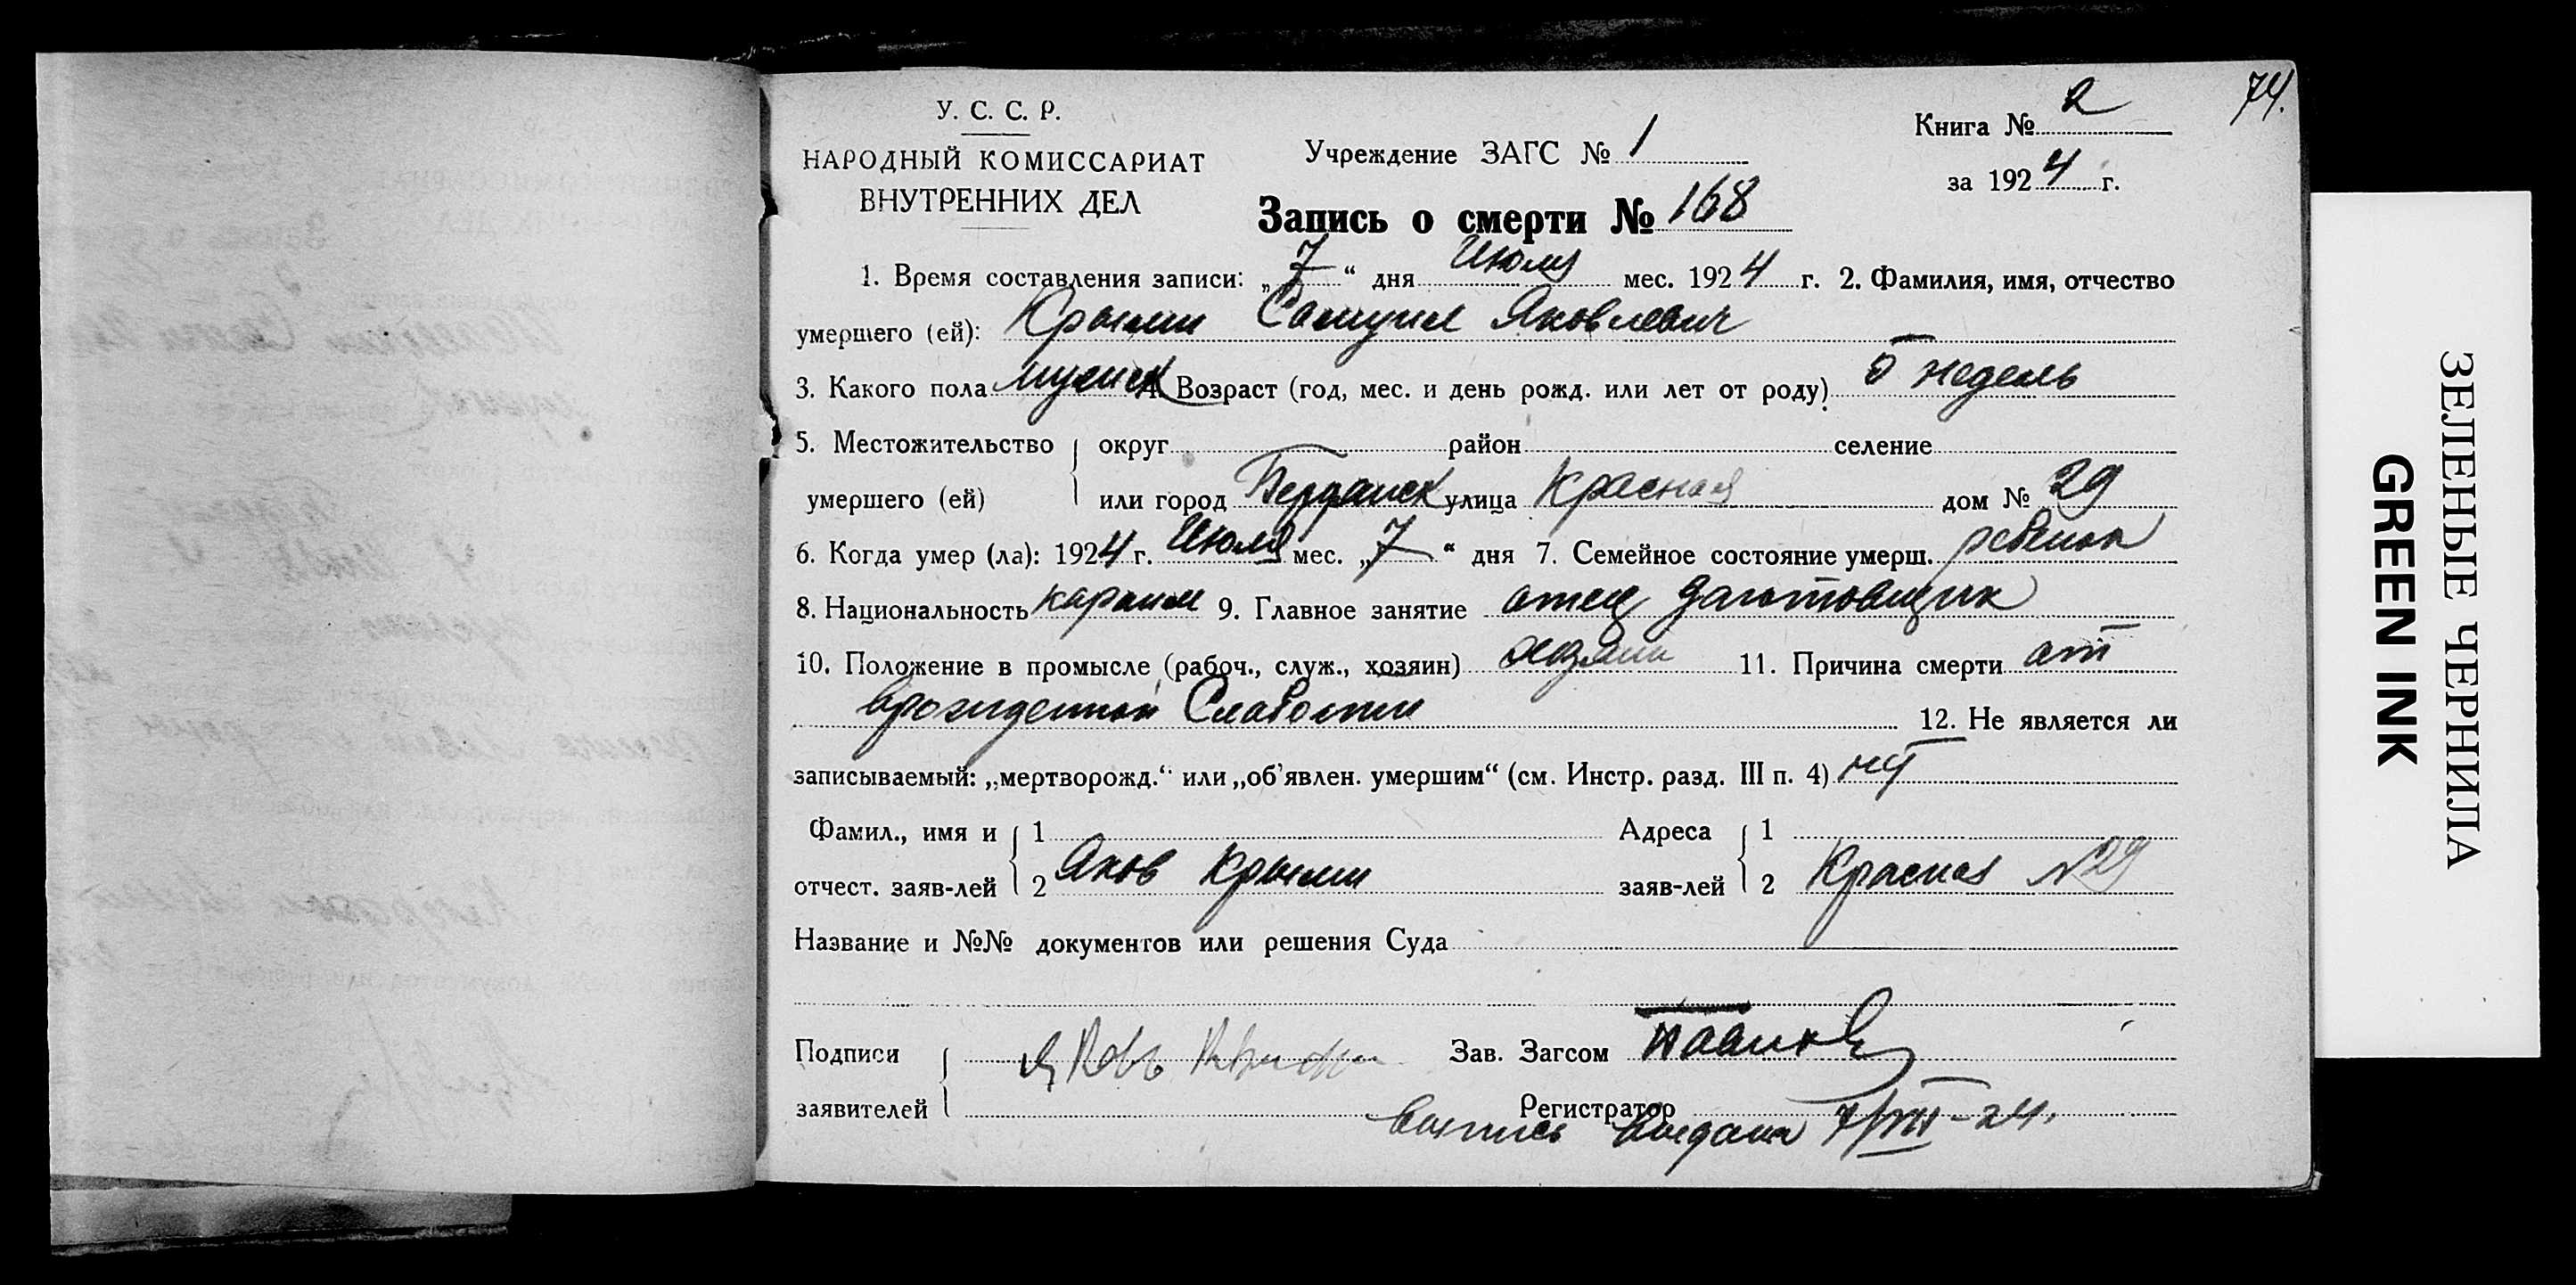 74.
У. С. С. Р.
НАРОДНЫЙ КОМИССАРИАТ
ВНУТРЕННИХ ДЕЛ
Учреждение ЗАГС № 1
Книга № 2
за 1924 г.
Запись о смерти № 168
1. Время составления записи: „7“ дня Июля мес. 1924 г. 2. Фамилия, имя, отчество
умершего (ей): Крыми Самуил Яковлевич
3. Какого пола мужск 4. Возраст (год, мес. и день рожд. или лет от роду) 5 недель
5. Местожительство округ район селение
умершего (ей) или город Бердянск улица Красная дом № 29
6. Когда умер (ла): 1924 г. Июля мес. „7“ дня 7. Семейное состояние умерш. ребенок
8. Национальность караим 9. Главное занятие отец
10. Положение в промысле (рабоч., служ., хозяин) хозяин 11. Причина смерти от
врожденной Слабости 12. Не является ли
записываемый: „мертворожд.“ или „об’явлен. умершим“ (см. Инстр. разд. III п. 4) нет
Фамил., имя и 1 Адреса 1
отчест. заяв-лей 2 Яков Крыми заяв-лей 2 Красная №29
Название и №№ документов или решения Суда
Подписи Яковъ Зав. Загсом
заявителей Регистратор
Выпись выдана 7/VII-24.
ЗЕЛЕНЫЕ ЧЕРНИЛА
GREEN INK